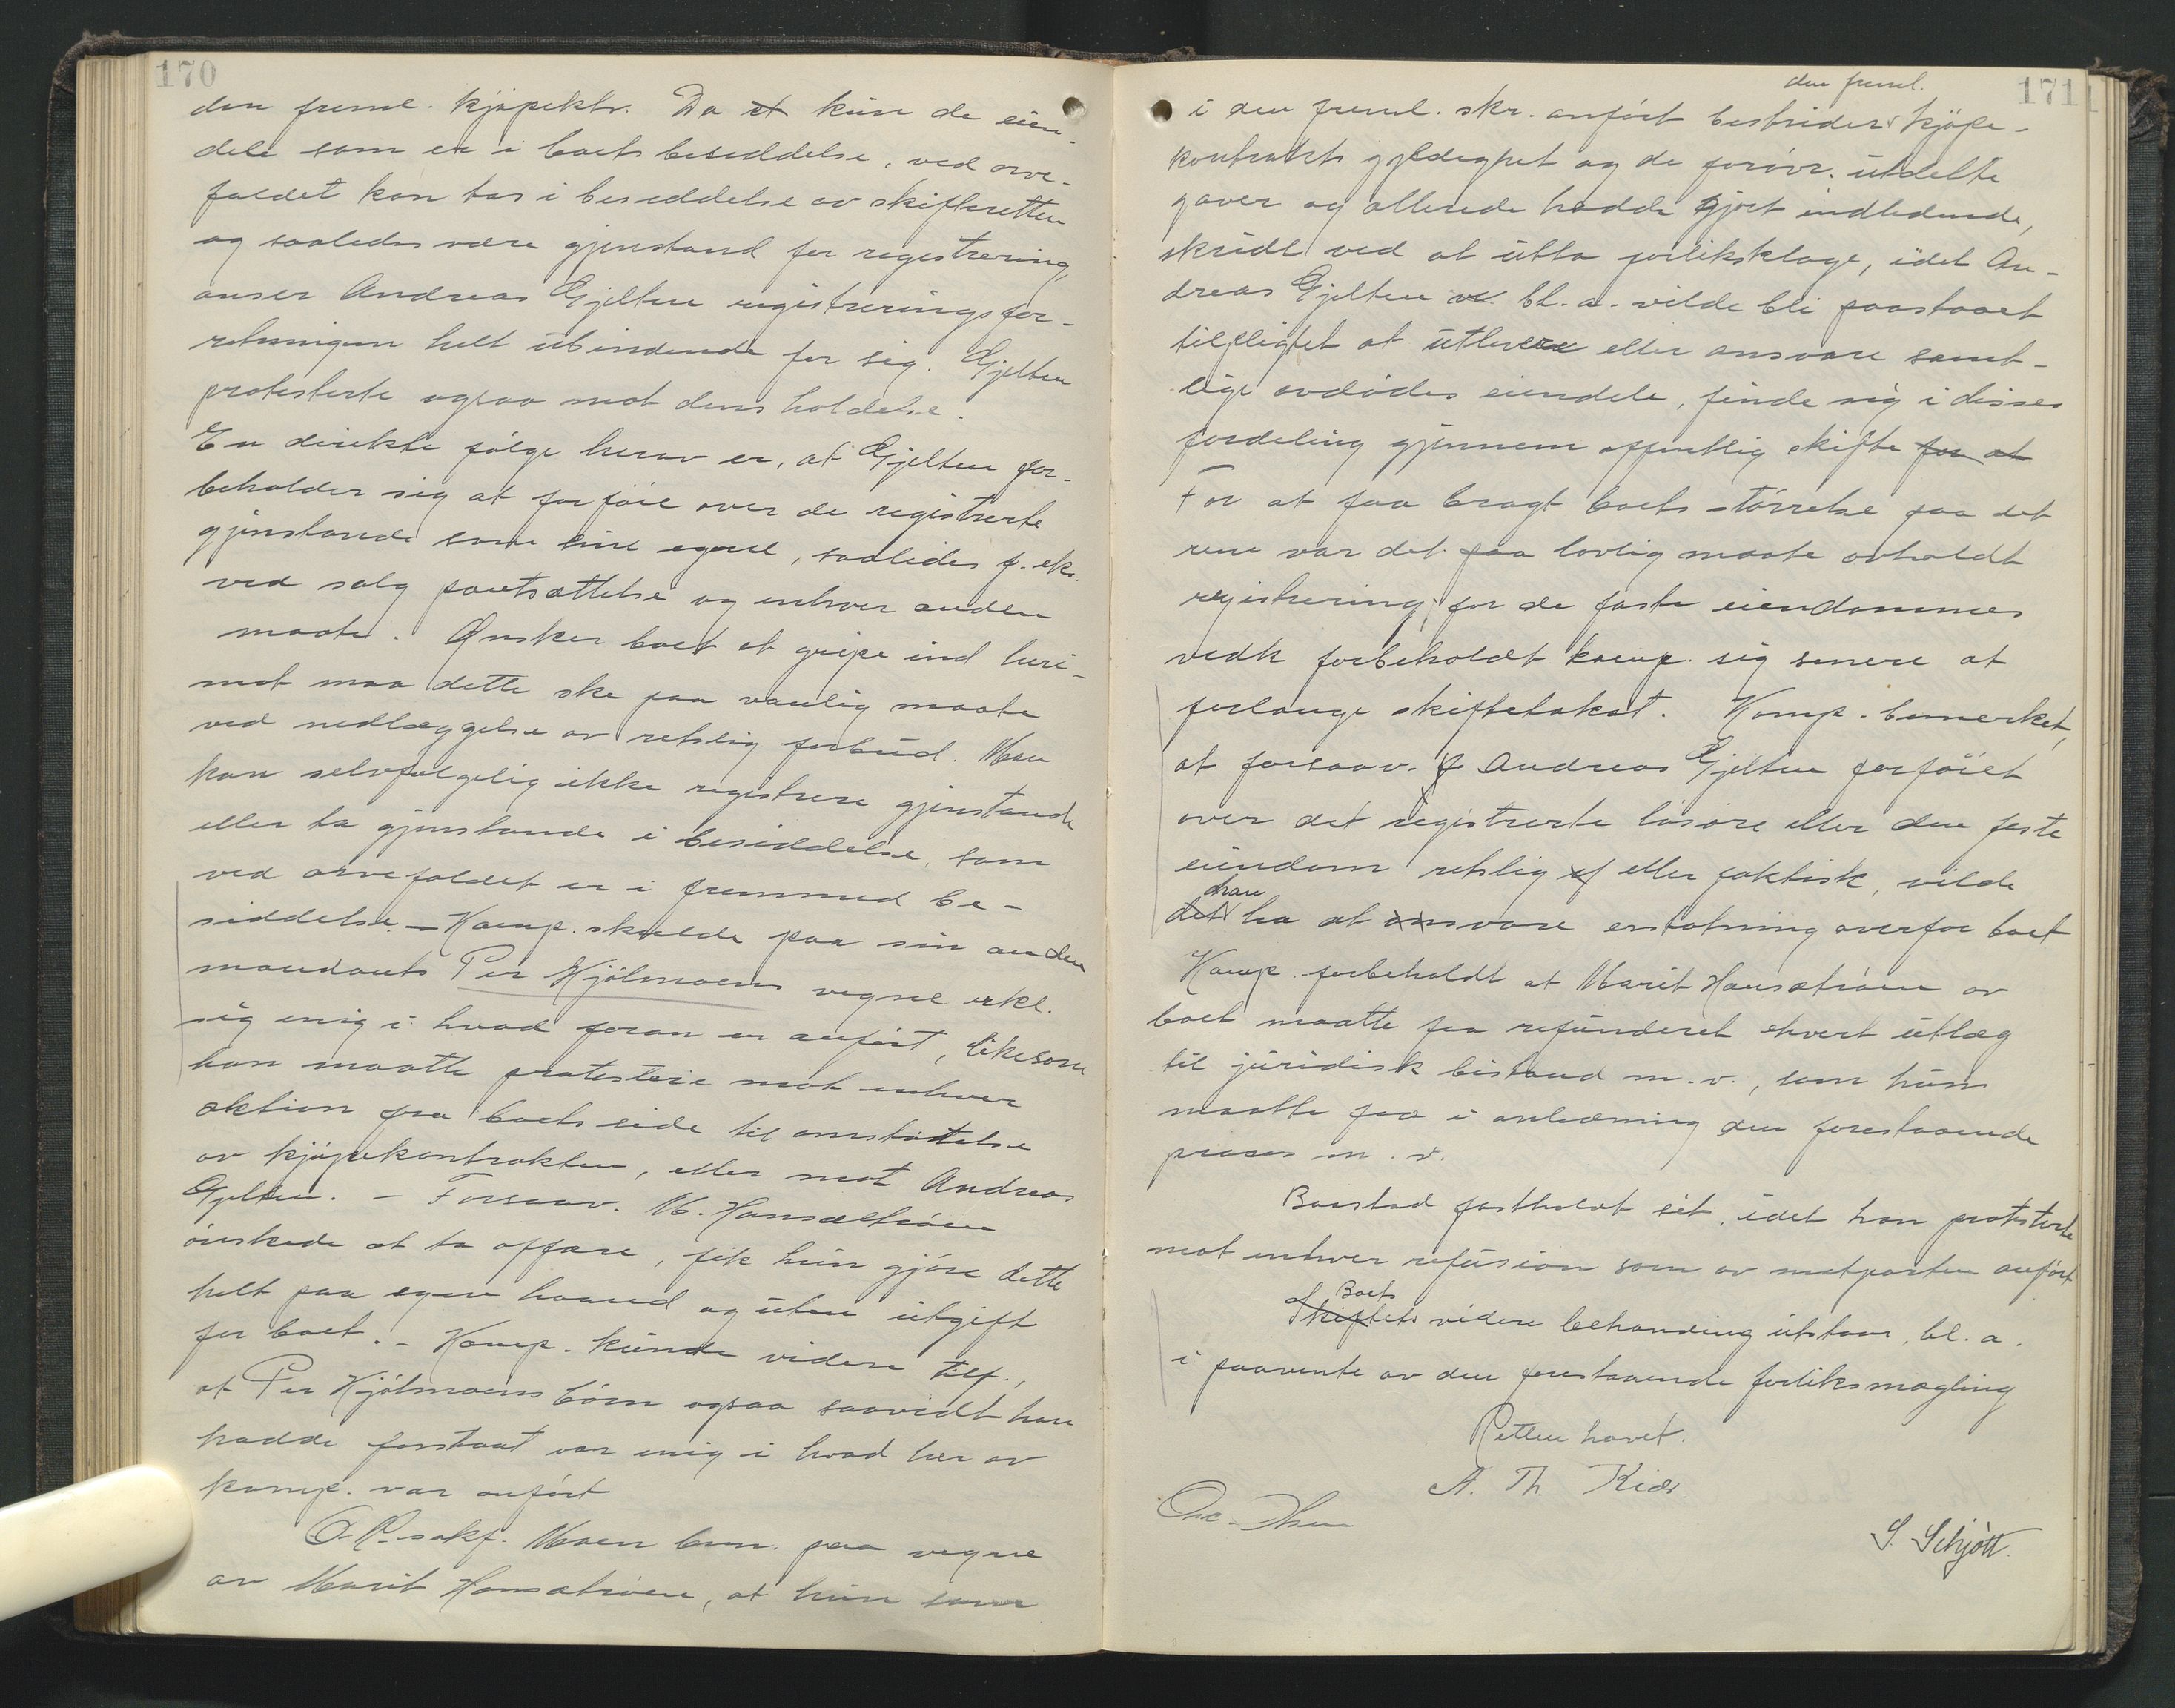 170
den freml. kjøpektr. Da et kun de eien-
dele som er i boets besiddelse, ved arve-
faldet kan tas i besiddelse av skifteretten
og saaledes være gjenstand for registrering,
anser Andreas Gjelten registreringsfor-
retningen helt ubindende for sig. Gjelten
protesterte ogsaa mot dens holdelse.
En direkte følge herav er, at Gjelten for-
beholder sig at forføie over de registrerte
gjenstande som sine egne, saaledes f. eks.
ved salg pantsættelse og enhver anden
maate. Ønsker boet at gripe ind heri-
mot maa dette ske paa vanlig maate
ved nedlæggelse av retslig forbud. Man
kan selvfølgelig ikke registrere gjenstande
eller ta gjenstande i besiddelse, som
ved arvefaldet er i fremmed be-
siddelse – Komp. skulde paa sin anden
mandants Per Kjølmoens vegne erkl.
sig enig i hvad foran er anført, likesom
han maatte protestere mot enhver
aktion fra boets side til omstøtelse
av kjøpekontrakten, eller mot Andreas
Gjelten. – Forsaav. M. Hansætrøen
ønskede at ta affære, fik hun gjøre dette
helt paa egen haand og uten utgift
for boet. – Komp. kunde videre tilf.,
at Per Kjølmoens børn ogsaa saavidt han
hadde forstaat var enig i hvad her av
komp. var anført
O.R.sakf. Moen bem. paa vegne
av Marit Hansætrøen, at hun som
171
den freml.
i den freml. skr. anført bestrider kjøpe-
kontrakts gyldighet og de forøvr. utdelte
gaver og allerede hadde gjort indledende,
skridt ved at utta forliksklage, idet An-
dreas Gjelten bl. a. vilde bli paastaaet
tilpligtet at utlevere eller ansvare samt-
lige avdødes eiendele, finde sig i disses
fordeling gjennem offentlig skifte for at
For at faa bragt boets størrelse paa det
rene var det paa lovlig maate avholdt
registrering, for de faste eiendommes
vedk forbeholdt komp. sig senere at
forlange skiftetakst. Komp. bemerket,
at forsaav. Andreas Gjelten forføiet
over det registrerte løsøre eller den faste
eiendom retslig eller faktisk, vilde
han
det ha at ansvare erstatning overfor boet
Komp. forbeholdt at Marit Hansætrøen av
boet maatte faa refunderet ehvert utlæg
til juridisk bistand m. v., som hun
maatte faa i anledning den forestaaende
proses m. v.
Baastad fastholdt sit, idet han protesterte
mot enhver refusion som av motparten anført
Boets
Skiftets videre behandling utstaar, bl. a.
i paavente av den forestaaende forliksmægling
Retten hævet.
A. Th. Kiær
S. Schjött.